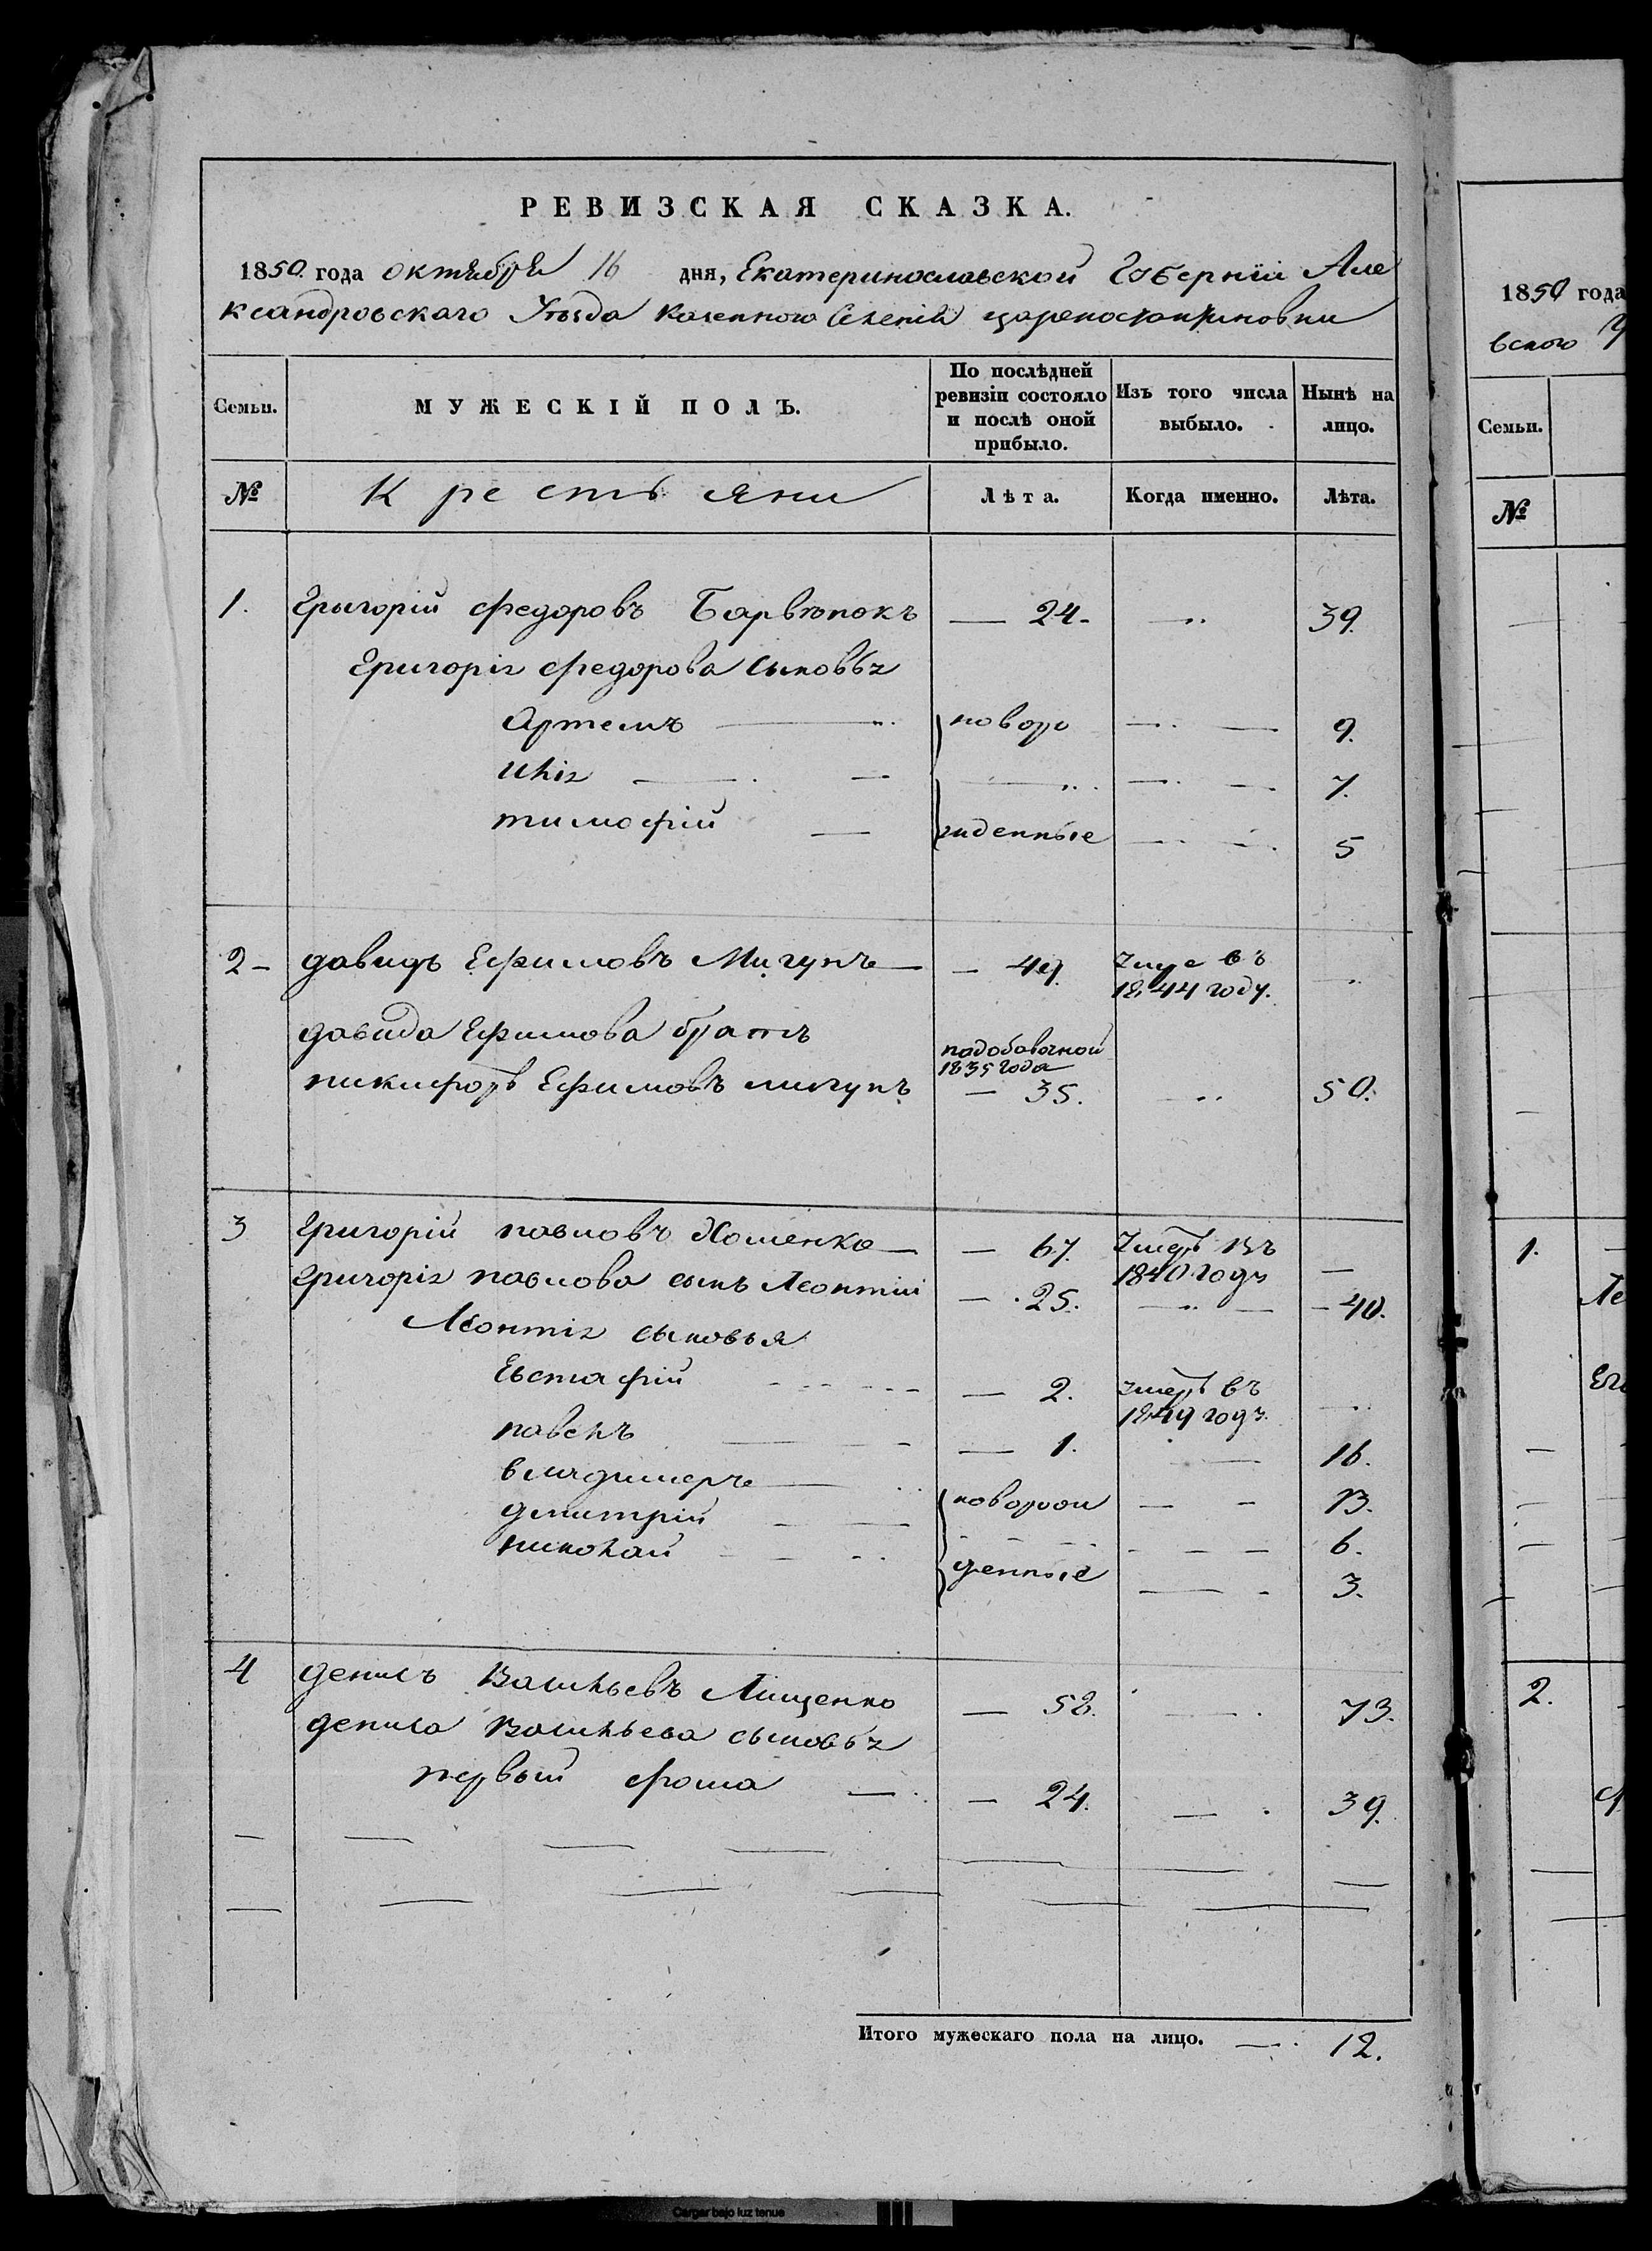 РЕВИЗСКАЯ СКАЗКА.
1850 года октября 16 дня, Екатеринославской Губерніи Але
ксандровскаго Уѣзда Казенного Селенія
Семьи.
МУЖЕСКІЙ ПОЛЪ.
По послѣдней ревизіи состояло и послѣ оной прибыло.
Изъ того числа выбыло.
Нынѣ на лицо.
№ Крестьяни Лѣта. Когда именно. Лѣта.
1. Григорій Федоровъ Барвѣнокъ — 24. 39.
Григорія Федорова сыновья
Артемъ новоро 9.
Илія 7.
тимофій жденные 5
2 давидъ Ефимовъ Мигунъ — 49. 1844 году.
давида Ефимова братъ
подобавочной
1835 года
никифоръ Ефимовъ мигунъ — 35. 50.
3 Григорій павловъ Хоменко — 67. Умеръ въ
1840 годъ
Григорія павлова сынъ Леонтій — 25. — 40.
Леонтія сыновья
Евстафій — 2. умеръ въ
1849 годъ.
павелъ — 1. 16.
владимеръ новорож 13.
дмитрій 6.
николай денные 3.
4 денисъ Васильевъ Лищенко — 58. 73.
дениса Васильева сыновья
первый фома — 24. 39.
Итого мужескаго пола на лицо. — 12.
1850 года
вского У
Семьи.
№
1.
Ле
2.
Cargar bajo luz tenue